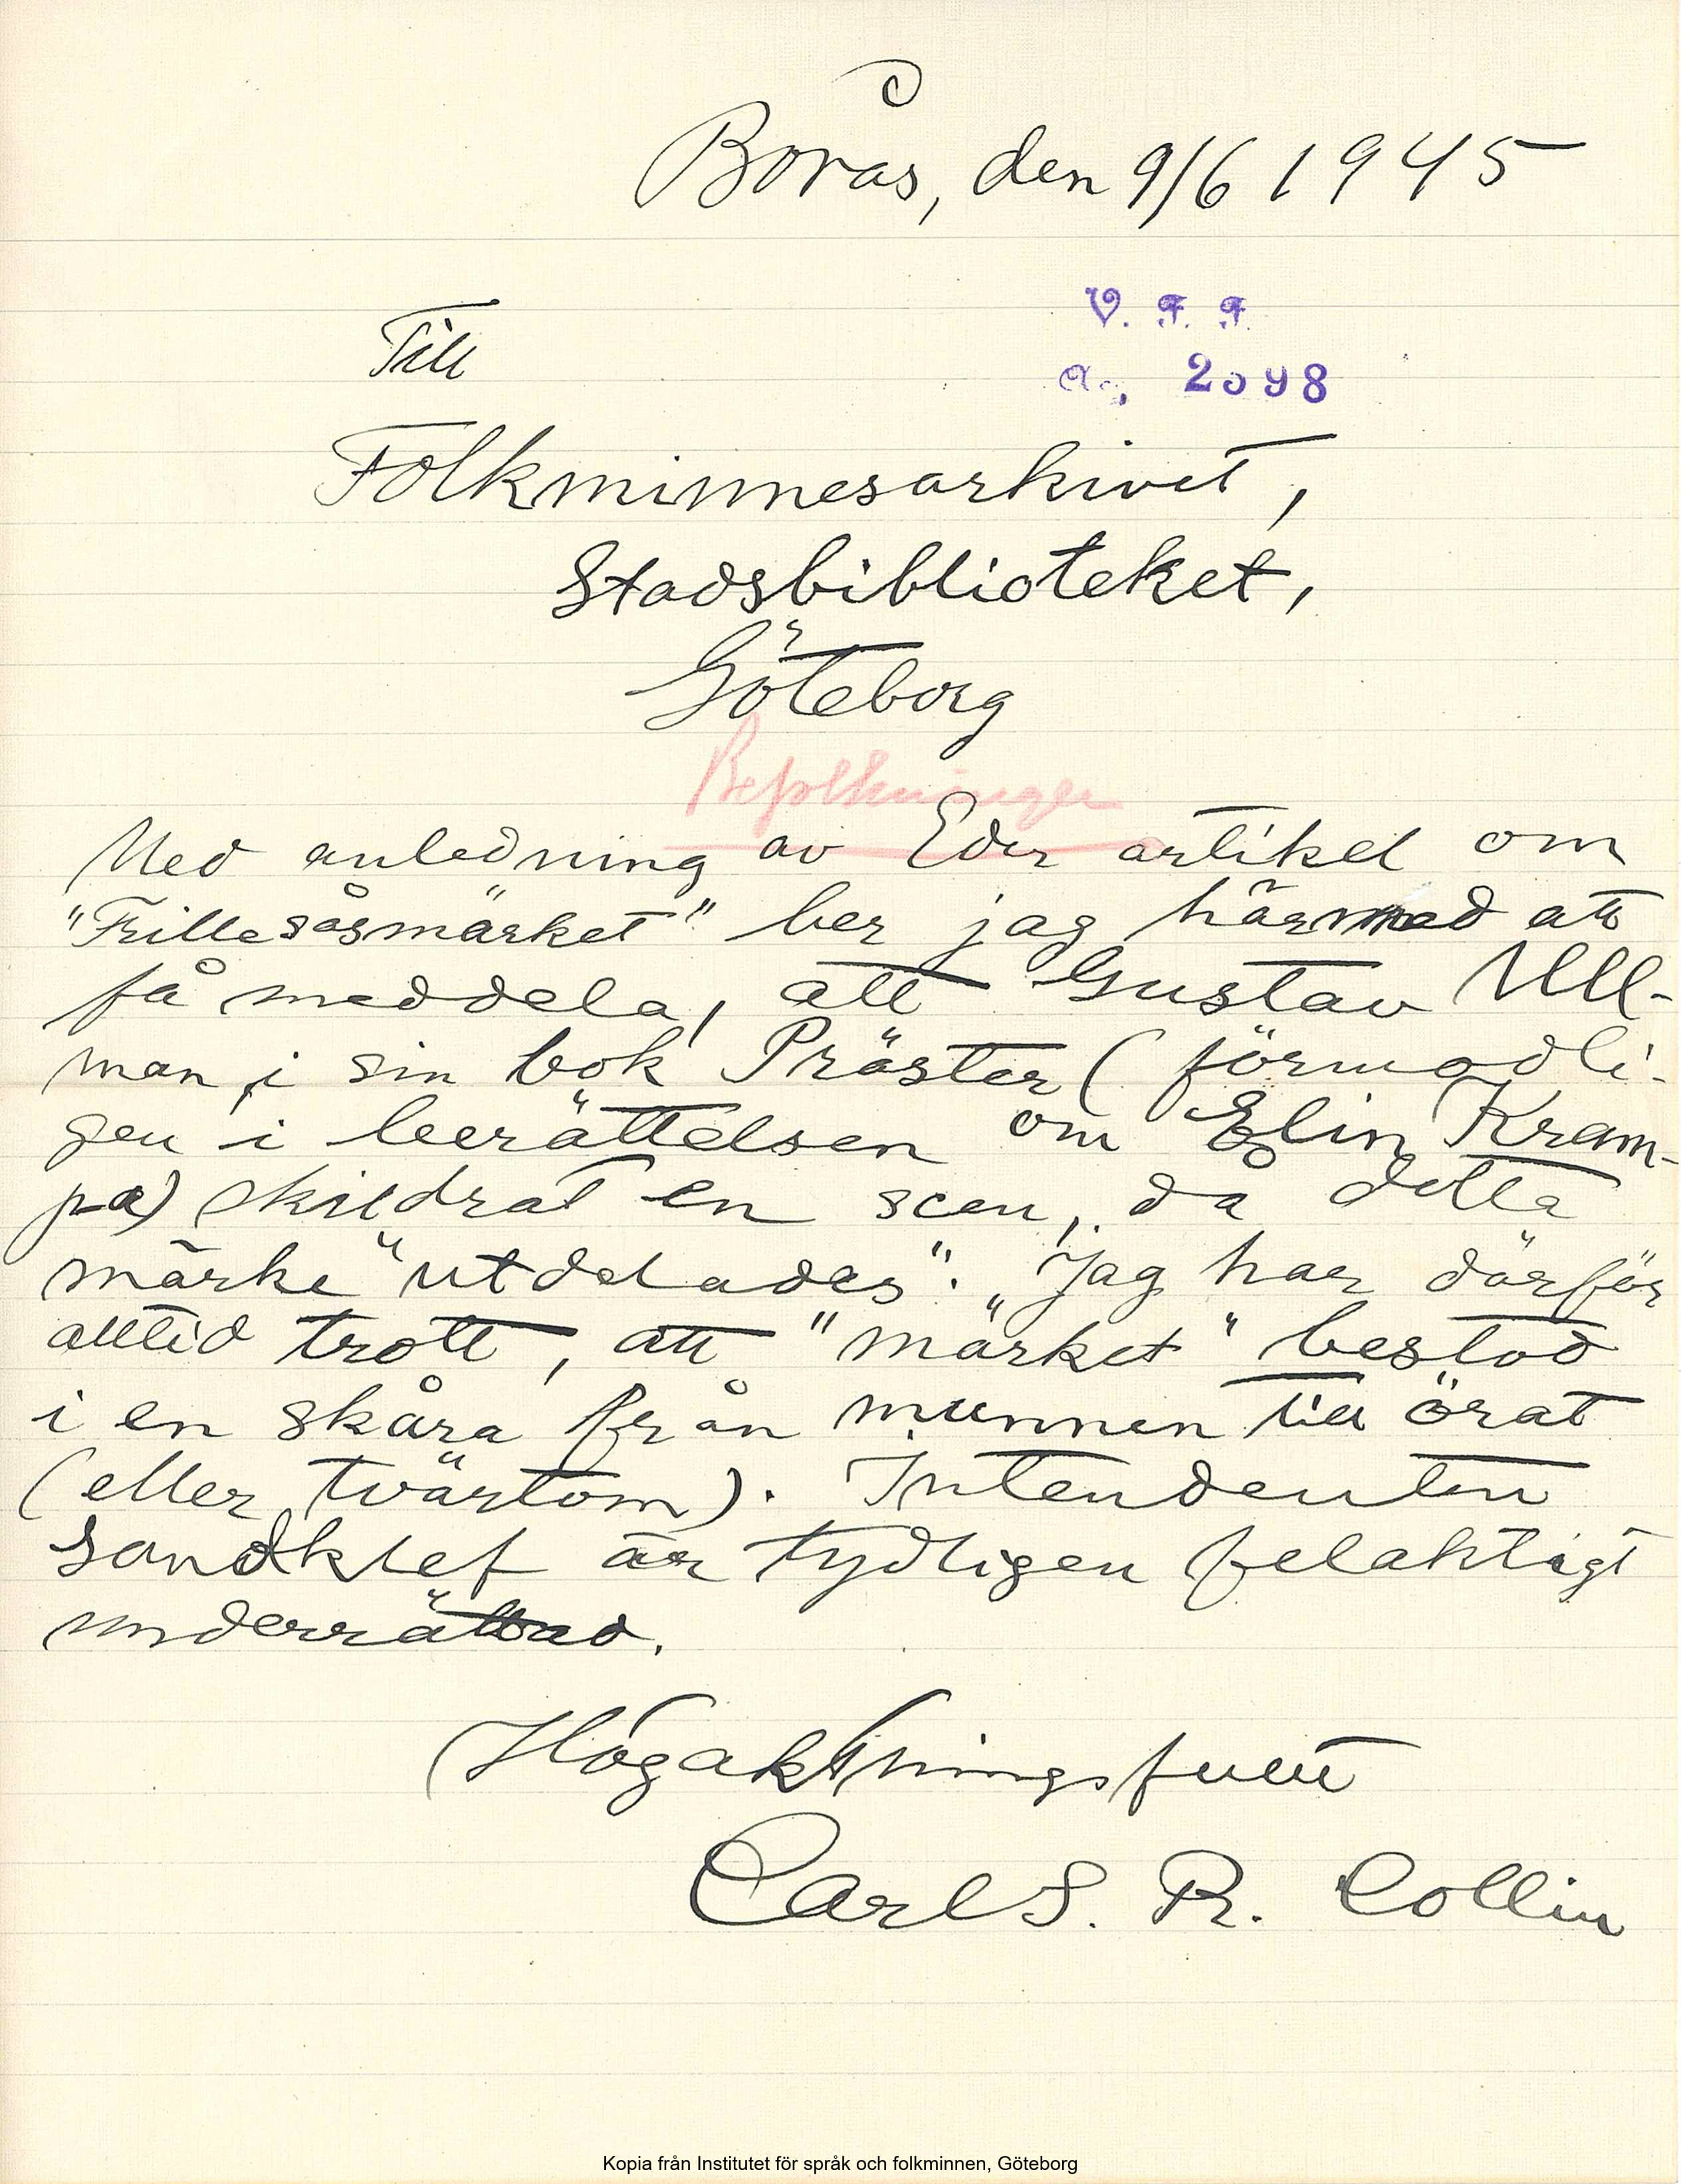 Borås, den 9/6 1945
V. F. F.
2598
Till
Folkminnesarkivet,
Stadsbiblioteket,
Göteborg
Befolkningen
Med anledning av Eder artikel om
"Frillesåsmärket" ber jag härmed att
få meddela, att Gustav Ull-
man i sin bok Präster (förmodli-
gen i berättelsen om Elin Kram-
pa) skildrat en scen, då detta
märke "utdelades". Jag har därför
alltid trott, att "märket" bestod
i en skåra från munnen till örat
(eller tvärtom). Intendenten
Sandklef är tydligen felaktigt
underrättad.
Högaktningsfullt
Carl S. R. Collin
Kopia från Institutet för språk och folkminnen, Göteborg